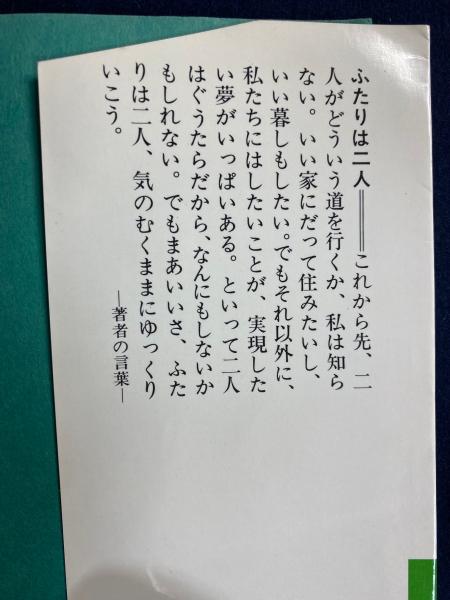 ふたりは二人――これから先、二
人がどういう道を行くか、私は知ら
ない。いい家にだって住みたいし、
いい暮しもしたい。でもそれ以外に、
私たちにはしたいことが、実現した
い夢がいっぱいある。といって二人
はぐうたらだから、なんにもしないか
もしれない。でもまあいいさ、ふた
りは二人、気のむくままにゆっくり
いこう。
―著者の言葉―